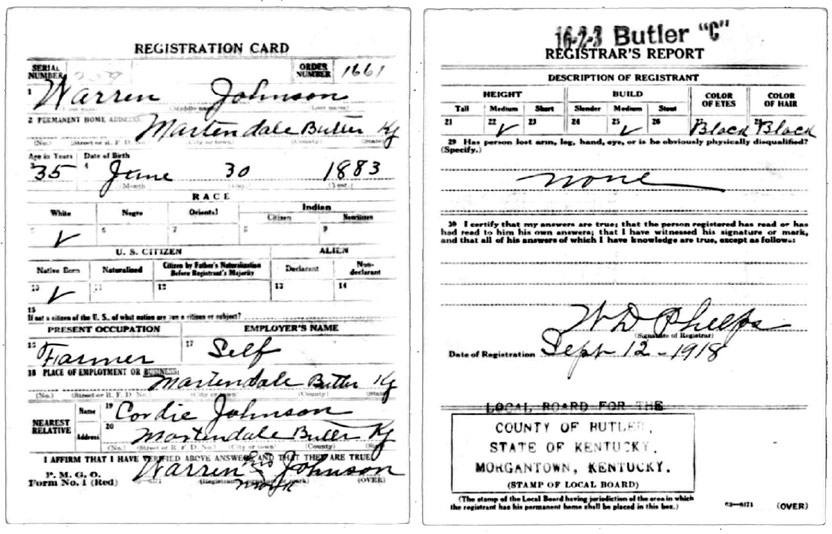 REGISTRATION CARD
SERIAL NUMBER
ORDER NUMBER 1661
1 Warren Johnson
2 PERMANENT HOME ADDRESS: Martendale Butler Ky
(No.) (Street or R. F. D. No.) (City or town) (County) (State)
Age in Years Date of Birth
3 35 4 June 30 1883
(Month) (Day) (Year)
RACE
White Negro Oriental Indian
Citizen Noncitizen
5 ✓ 6 7 8 9
U. S. CITIZEN ALIEN
Native Born Naturalized Citizen by Father's Naturalization Before Registrant's Majority Declarant Non-declarant
10 ✓ 11 12 13 14
15
If not a citizen of the U. S., of what nation are you a citizen or subject?
PRESENT OCCUPATION EMPLOYER'S NAME
16 Farmer 17 Self
18 PLACE OF EMPLOYMENT OR BUSINESS:
Martendale Butler Ky
(No.) (Street or R. F. D. No.) (City or town) (County) (State)
NEAREST RELATIVE
Name 19 Cordie Johnson
Address 20 Martendale Butler Ky
(No.) (Street or R. F. D. No.) (City or town) (County) (State)
I AFFIRM THAT I HAVE VERIFIED ABOVE ANSWERS AND THAT THEY ARE TRUE
P. M. G. O.
Form No. 1 (Red)
Warren his Johnson
mark
(Registrant's signature or mark) (OVER)
16-2-3 Butler "C"
REGISTRAR'S REPORT
DESCRIPTION OF REGISTRANT
HEIGHT BUILD COLOR OF EYES COLOR OF HAIR
Tall Medium Short Slender Medium Stout
21 22 ✓ 23 24 25 ✓ 26 27 Black 28 Black
29 Has person lost arm, leg, hand, eye, or is he obviously physically disqualified?
(Specify.)
none
30 I certify that my answers are true; that the person registered has read or has
had read to him his own answers; that I have witnessed his signature or mark,
and that all of his answers of which I have knowledge are true, except as follows:
W D Phelps
(Signature of Registrar)
Date of Registration Sept 12-1918
LOCAL BOARD FOR THE
COUNTY OF BUTLER,
STATE OF KENTUCKY,
MORGANTOWN, KENTUCKY.
(STAMP OF LOCAL BOARD)
(The stamp of the Local Board having jurisdiction of the area in which
the registrant has his permanent home shall be placed in this box.)
03—6171 (OVER)